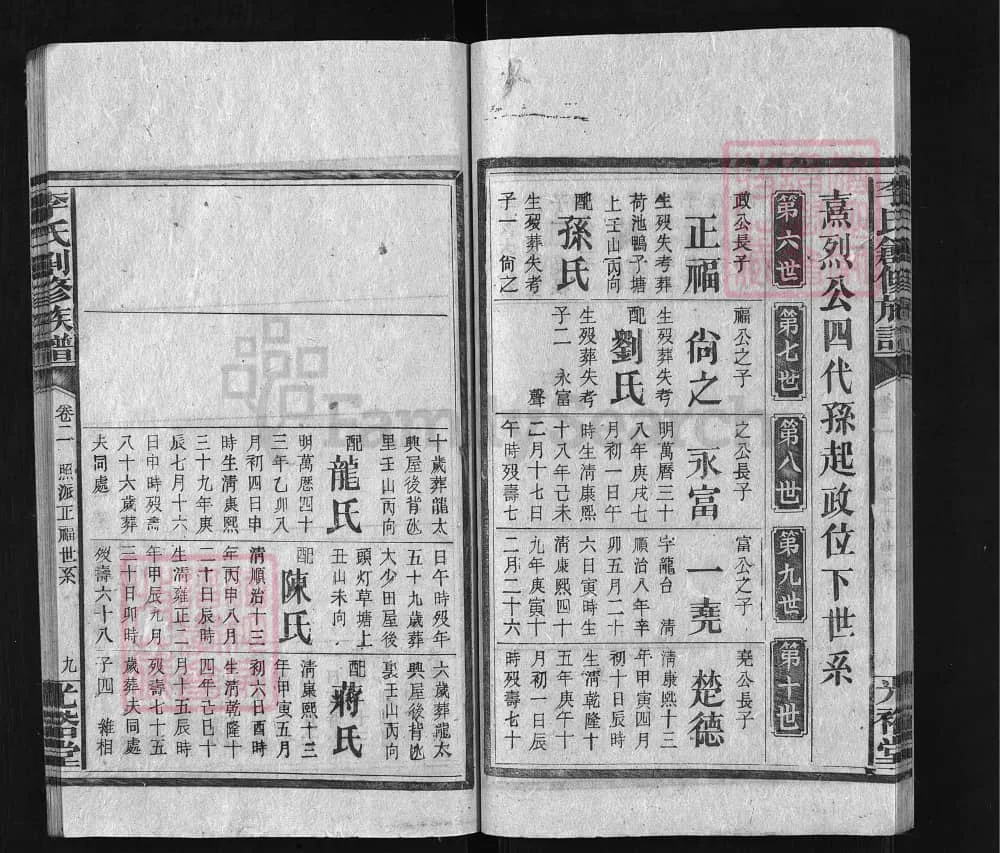 李氏創修族譜
光裕堂
熹烈公四代孫起政位下世系
第六世
第七世
第八世
第九世
第十世
政公長子
正福
生歿失考葬
荷池鴨子塘
上壬山丙向
配
孫氏
生歿葬失考
子一 尙之
福公之子
尙之
生歿葬失考
配
劉氏
生歿葬失考
子二 永富
聲
之公長子
永富
明萬曆三十
八年庚戌七
月初一日午
時生淸康熙
十八年己未
二月十七日
午時歿壽七
富公之子
一堯
字龍台 淸
順治八年辛
卯五月二十
六日寅時生
淸康熙四十
九年庚寅十
二月二十六
堯公長子
楚德
淸康熙十三
年甲寅四月
初十日辰時
生淸乾隆十
五年庚午十
月初一日辰
時歿壽七十
十歲葬龍太
興屋後背氹
里壬山丙向
配
龍氏
明萬曆四十
三年乙卯八
月初四日申
時生淸康熙
三十九年庚
辰七月十六
日申時歿壽
八十六歲葬
夫同處
日午時歿年
五十九歲葬
大少田屋後
頭灯草塘上
丑山未向
配
陳氏
淸順治十三
年丙申八月
二十日辰時
生淸雍正二
年甲辰九月
三十日卯時
歿壽六十八
六歲葬龍太
興屋後背氹
裏壬山丙向
配
蔣氏
淸康熙十三
年甲寅五月
初六日酉時
生淸乾隆十
四年己巳十
月十五辰時
歿壽七十五
歲葬夫同處
子四 雑相
李氏創修族譜
卷二 照派正福世系
九
光裕堂